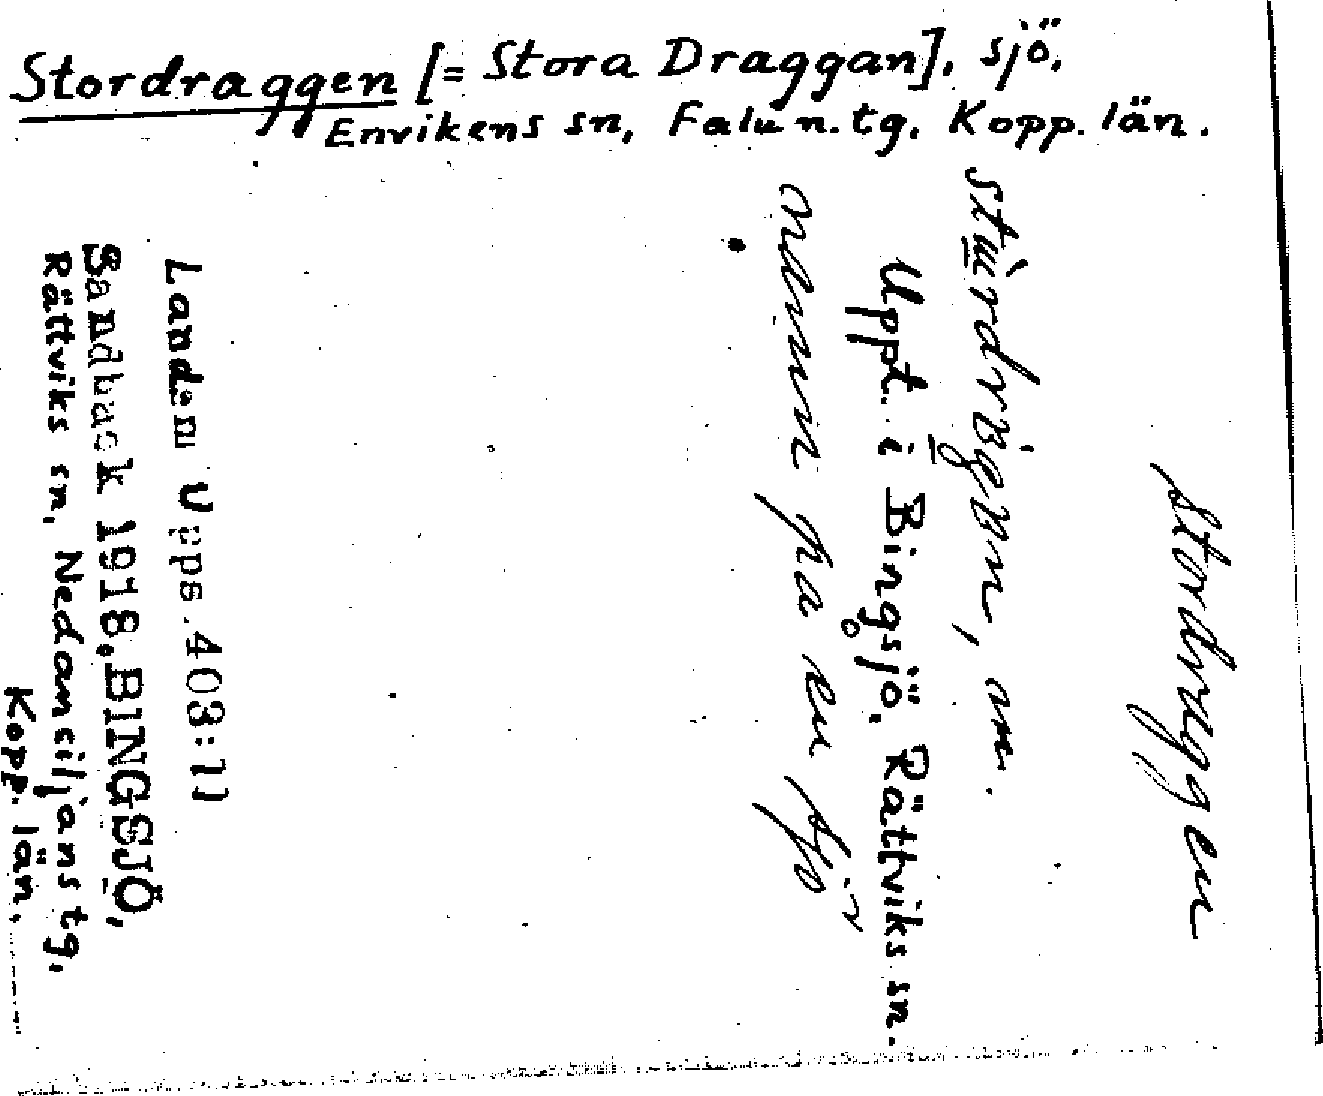 Stordraggen [= Stora Draggan], sjö,
Envikens sn, Falu n. tg. Kopp. län.
Stordraggen
Uppt. i Bingsjö, Rättviks sn.
namn på en sjö
Landsm Upps. 403:11
Sandback 1918. BINGSJÖ,
Rättviks sn, Nedansiljans tg,
Kopp. län.